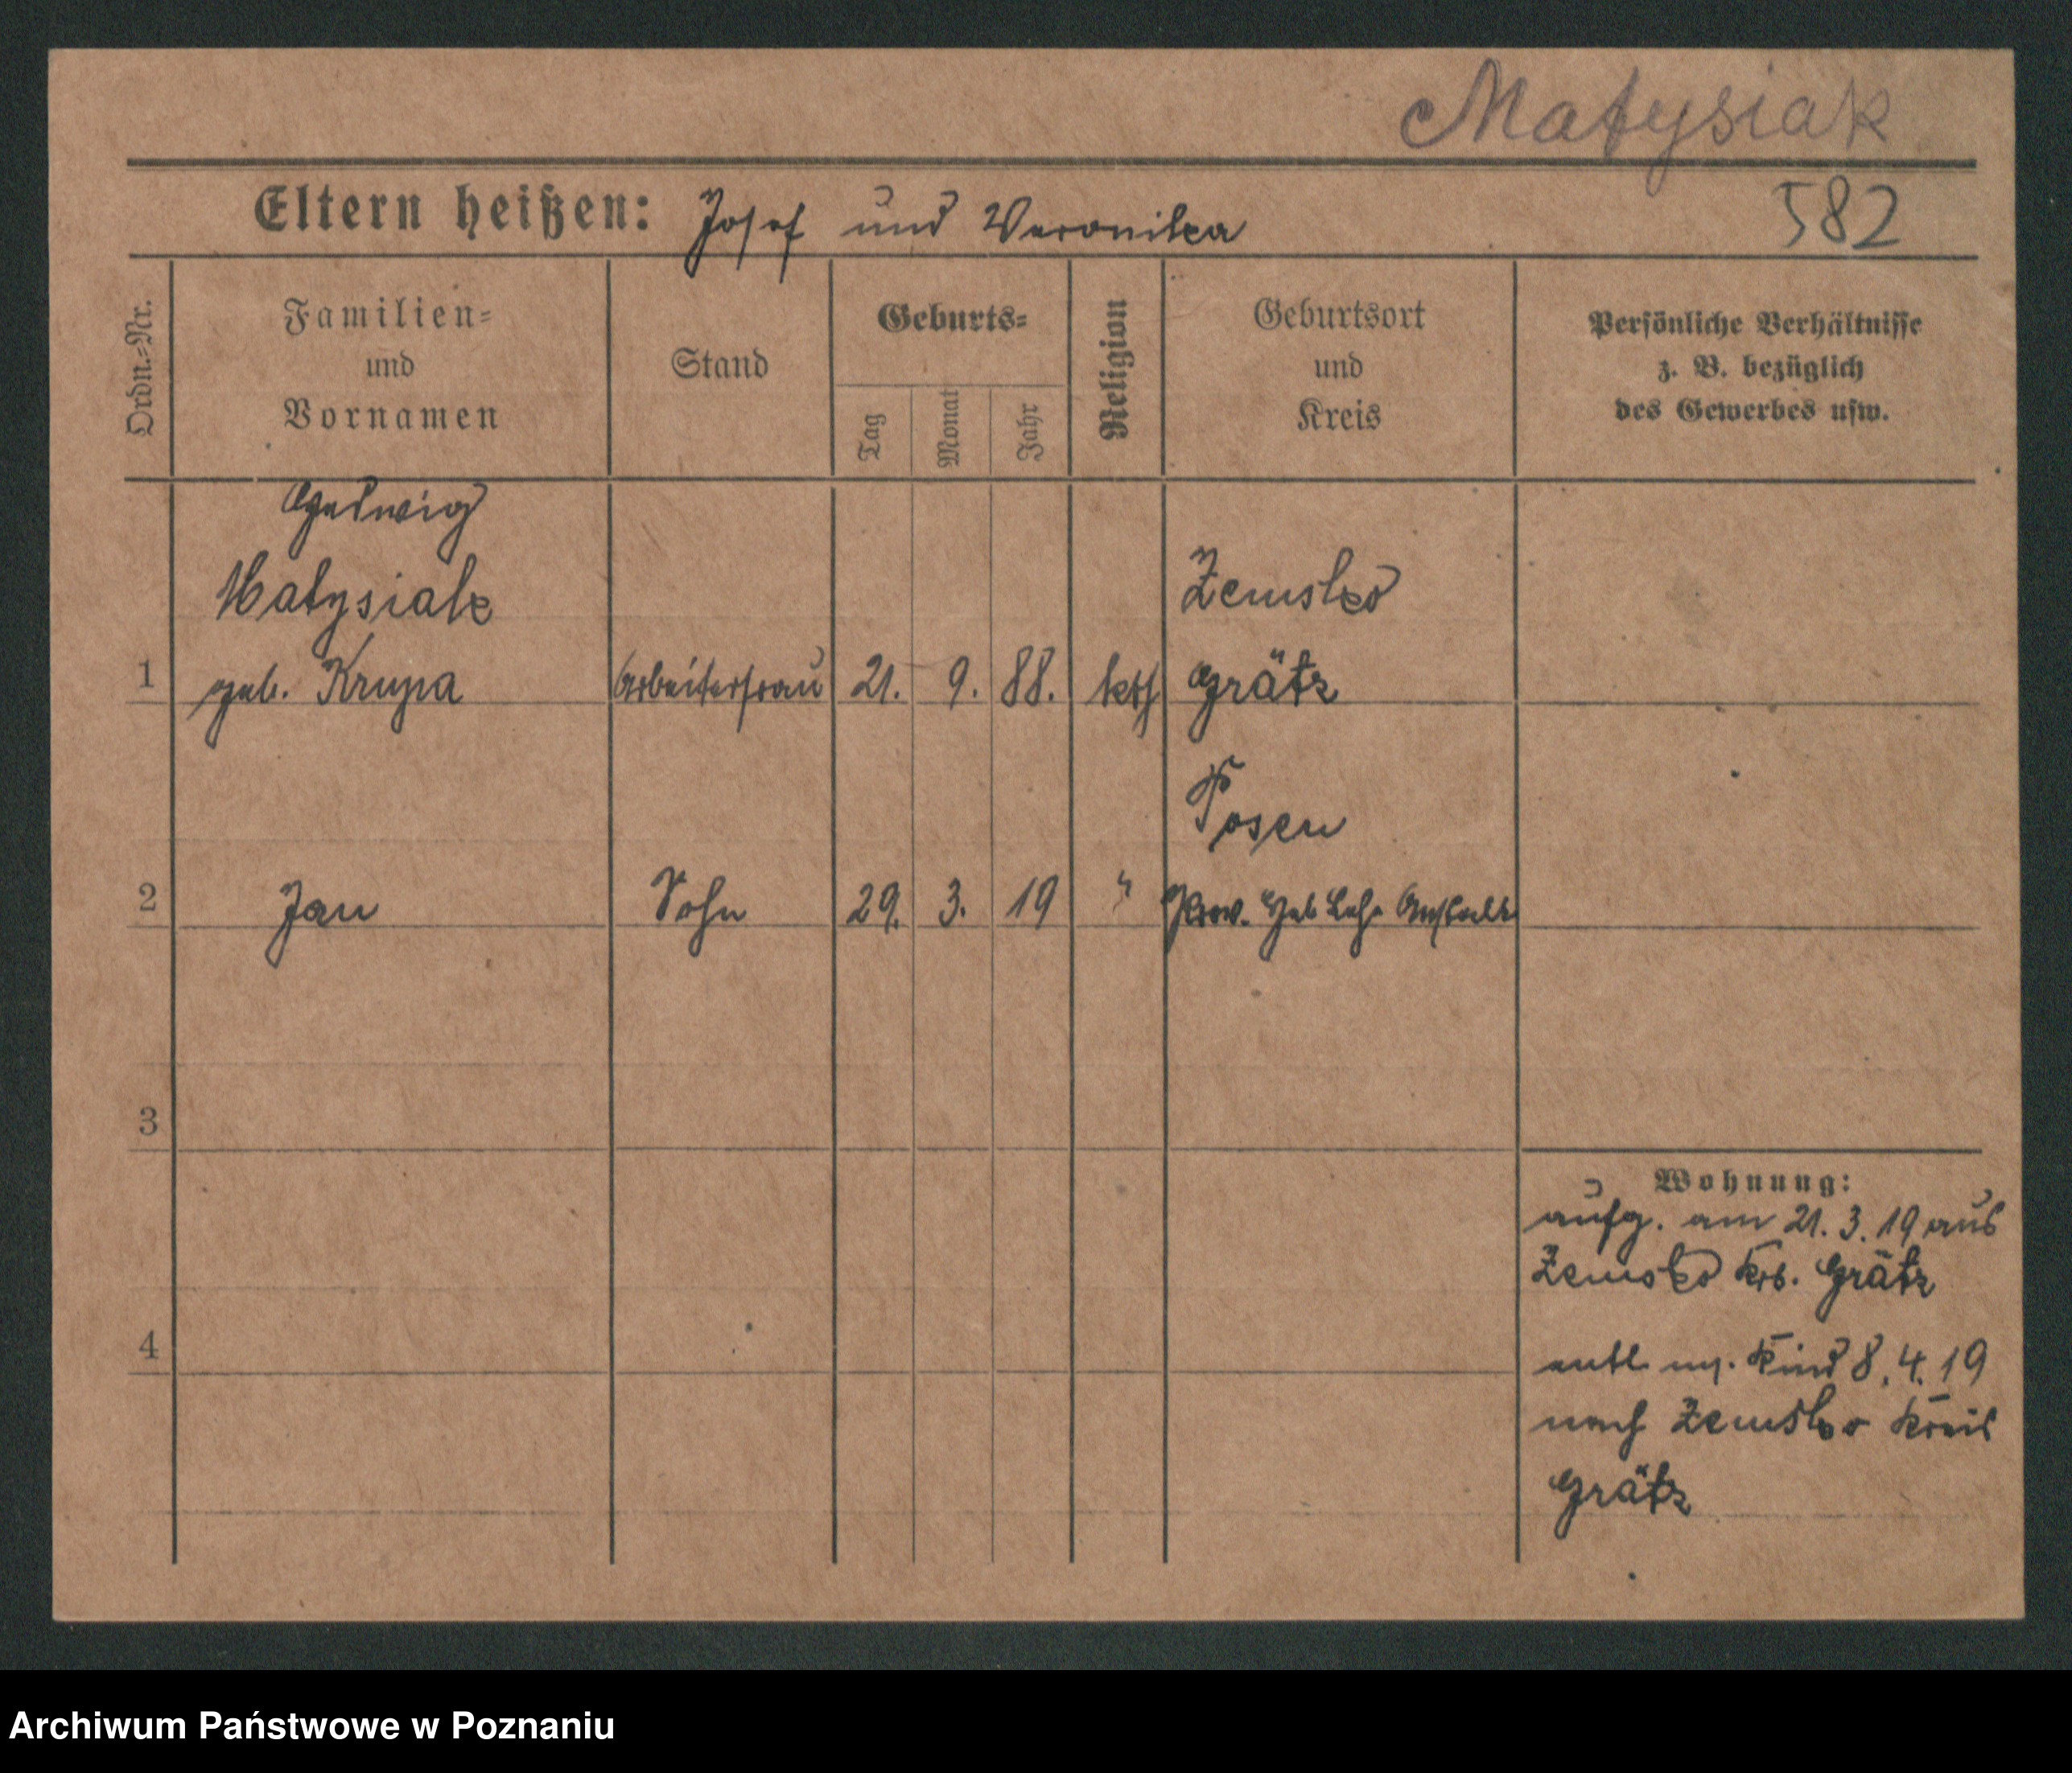 Matysiak
Eltern heißen: Josef und Veronika
582
Ordn.-Nr.
Familien-
und
Vornamen
Stand
Geburts-
Tag
Monat
Jahr
Religion
Geburtsort
und
Kreis
Persönliche Verhältnisse
z. B. bezüglich
des Gewerbes usw.
Hedwig
Matysiak
Zemsko
1 geb. Krupa Arbeiterfrau 21. 9. 88. kth Grätz
Posen
2 Jan Sohn 29. 3. 19 " Prov. Heb. Lehr Anstalt
3
Wohnung:
aufg. am 21. 3. 19 aus
Zemsko Krs. Grätz
4
entl. m. Kind 8. 4. 19
nach Zemsko Kreis
Grätz
Archiwum Państwowe w Poznaniu